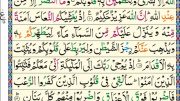 عِندِ اللَّهِ إِنَّ اللَّهَ عَزِيزٌ حَكِيمٌ إِذْ يُغَشِّيكُمُ النُّعَاسَ أَمَنَةً
مِّنْهُ وَيُنَزِّلُ عَلَيْكُم مِّنَ السَّمَاءِ مَاءً لِّيُطَهِّرَكُم بِهِ
وَيُذْهِبَ عَنكُمْ رِجْزَ الشَّيْطَانِ وَلِيَرْبِطَ عَلَىٰ قُلُوبِكُمْ وَيُثَبِّتَ
بِهِ الْأَقْدَامَ إِذْ يُوحِي رَبُّكَ إِلَى الْمَلَائِكَةِ أَنِّي مَعَكُمْ فَثَبِّتُوا
الَّذِينَ آمَنُوا سَأُلْقِي فِي قُلُوبِ الَّذِينَ كَفَرُوا الرُّعْبَ